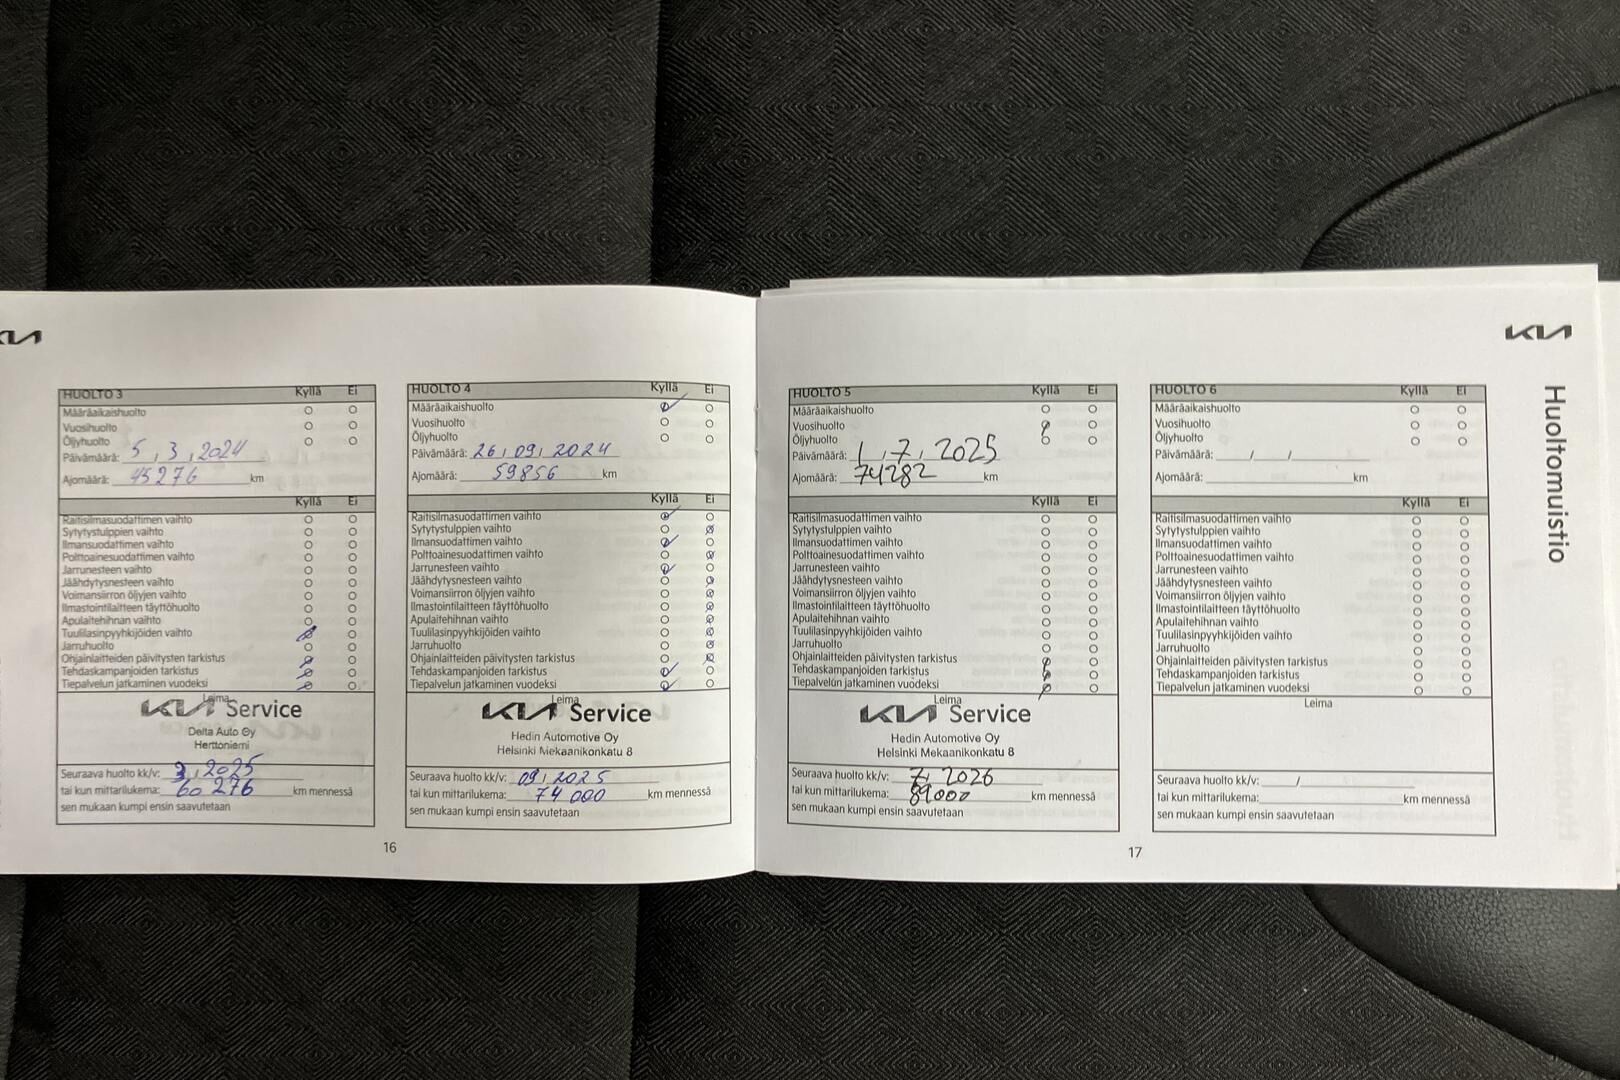 KIA
HUOLTO 3 Kyllä Ei
Määräaikaishuolto
Vuosihuolto
Öljyhuolto
Päivämäärä: 5 , 3 , 2024
Ajomäärä: 45276 km
Kyllä Ei
Raitisilmasuodattimen vaihto
Sytytystulppien vaihto
Ilmansuodattimen vaihto
Polttoainesuodattimen vaihto
Jarrunesteen vaihto
Jäähdytysnesteen vaihto
Voimansiirron öljyjen vaihto
Ilmastointilaitteen täyttöhuolto
Apulaitehihnan vaihto
Tuulilasinpyyhkijöiden vaihto
Jarruhuolto
Ohjainlaitteiden päivitysten tarkistus
Tehdaskampanjoiden tarkistus
Tiepalvelun jatkaminen vuodeksi
Leima
KIA Service
Delta Auto Oy
Herttoniemi
Seuraava huolto kk/v: 3 , 2025
tai kun mittarilukema: 60 276 km mennessä
sen mukaan kumpi ensin saavutetaan
16
HUOLTO 4 Kyllä Ei
Määräaikaishuolto
Vuosihuolto
Öljyhuolto
Päivämäärä: 26 / 09 / 2024
Ajomäärä: 59856 km
Kyllä Ei
Raitisilmasuodattimen vaihto
Sytytystulppien vaihto
Ilmansuodattimen vaihto
Polttoainesuodattimen vaihto
Jarrunesteen vaihto
Jäähdytysnesteen vaihto
Voimansiirron öljyjen vaihto
Ilmastointilaitteen täyttöhuolto
Apulaitehihnan vaihto
Tuulilasinpyyhkijöiden vaihto
Jarruhuolto
Ohjainlaitteiden päivitysten tarkistus
Tehdaskampanjoiden tarkistus
Tiepalvelun jatkaminen vuodeksi
Leima
KIA Service
Hedin Automotive Oy
Helsinki Mekaanikonkatu 8
Seuraava huolto kk/v: 09 / 2025
tai kun mittarilukema: 74 000 km mennessä
sen mukaan kumpi ensin saavutetaan
KIA
Huoltomuistio
HUOLTO 5 Kyllä Ei
Määräaikaishuolto
Vuosihuolto
Öljyhuolto
Päivämäärä: 1 , 7 , 2025
Ajomäärä: 74282 km
Kyllä Ei
Raitisilmasuodattimen vaihto
Sytytystulppien vaihto
Ilmansuodattimen vaihto
Polttoainesuodattimen vaihto
Jarrunesteen vaihto
Jäähdytysnesteen vaihto
Voimansiirron öljyjen vaihto
Ilmastointilaitteen täyttöhuolto
Apulaitehihnan vaihto
Tuulilasinpyyhkijöiden vaihto
Jarruhuolto
Ohjainlaitteiden päivitysten tarkistus
Tehdaskampanjoiden tarkistus
Tiepalvelun jatkaminen vuodeksi
Leima
KIA Service
Hedin Automotive Oy
Helsinki Mekaanikonkatu 8
Seuraava huolto kk/v: 7 / 2026
tai kun mittarilukema: 89000 km mennessä
sen mukaan kumpi ensin saavutetaan
HUOLTO 6 Kyllä Ei
Määräaikaishuolto
Vuosihuolto
Öljyhuolto
Päivämäärä: / /
Ajomäärä: km
Kyllä Ei
Raitisilmasuodattimen vaihto
Sytytystulppien vaihto
Ilmansuodattimen vaihto
Polttoainesuodattimen vaihto
Jarrunesteen vaihto
Jäähdytysnesteen vaihto
Voimansiirron öljyjen vaihto
Ilmastointilaitteen täyttöhuolto
Apulaitehihnan vaihto
Tuulilasinpyyhkijöiden vaihto
Jarruhuolto
Ohjainlaitteiden päivitysten tarkistus
Tehdaskampanjoiden tarkistus
Tiepalvelun jatkaminen vuodeksi
Leima
Seuraava huolto kk/v: /
tai kun mittarilukema: km mennessä
sen mukaan kumpi ensin saavutetaan
17